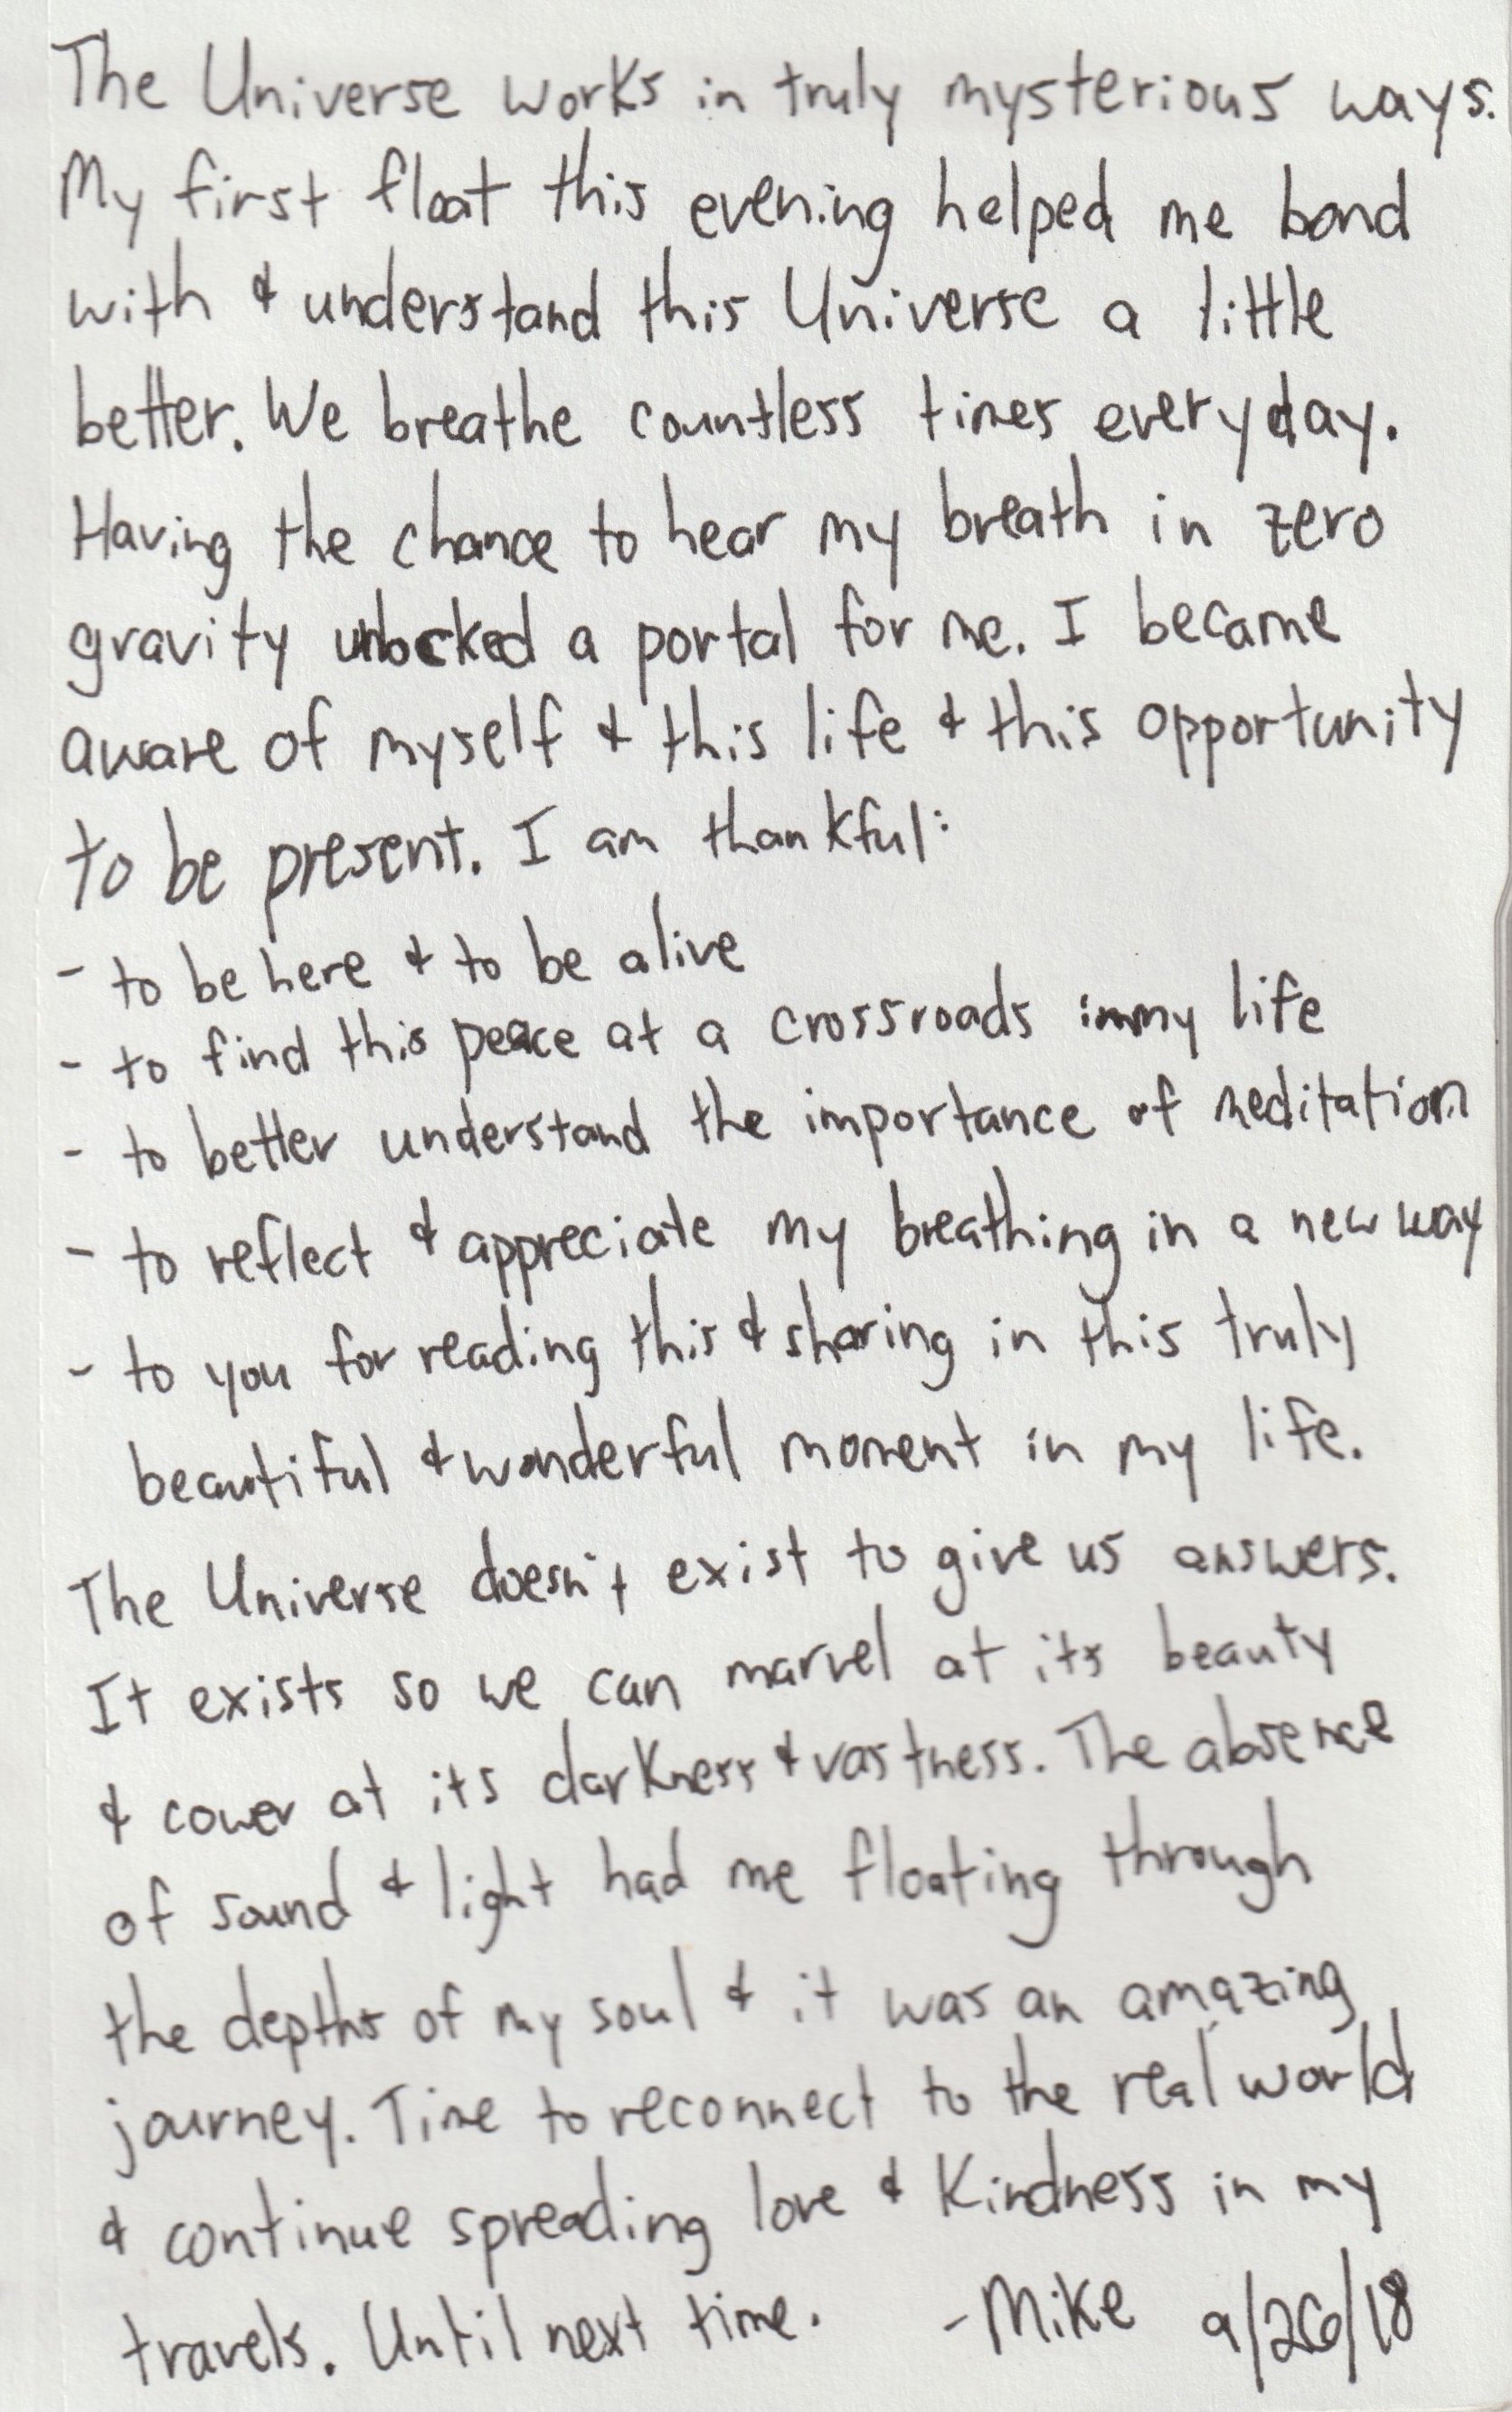 The Universe works in truly mysterious ways.
My first float this evening helped me bond
with & understand this Universe a little
better. We breathe countless times everyday.
Having the chance to hear my breath in zero
gravity unlocked a portal for me. I became
aware of myself & this life & this opportunity
to be present. I am thankful:
- to be here & to be alive
- to find this peace at a crossroads in my life
- to better understand the importance of meditation
- to reflect & appreciate my breathing in a new way
- to you for reading this & sharing in this truly
beautiful & wonderful moment in my life.
The Universe doesn't exist to give us answers.
It exists so we can marvel at its beauty
& cower at its darkness & vastness. The absence
of sound & light had me floating through
the depths of my soul & it was an amazing
journey. Time to reconnect to the real world
& continue spreading love & kindness in my
travels. Until next time. - Mike 9/26/18